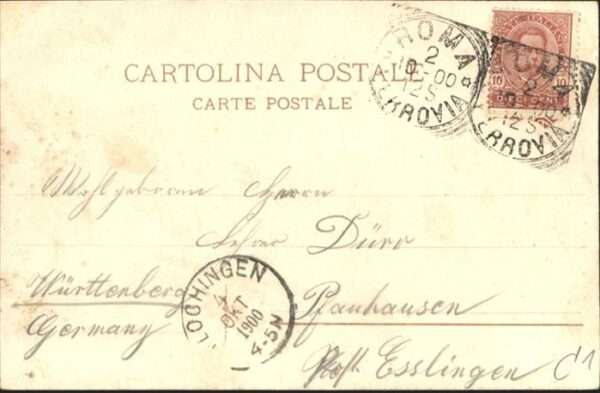 CARTOLINA POSTALE
CARTE POSTALE
ROMA
2
10-00
12S
FERROVIA
ROMA
2
12S
FERROVIA
10 10
Wohlgeboren Herrn
Lehrer Dürr
Württenberg Pfauhausen
Germany Post Esslingen
PLOCHINGEN
4
OKT
1900
4-5N